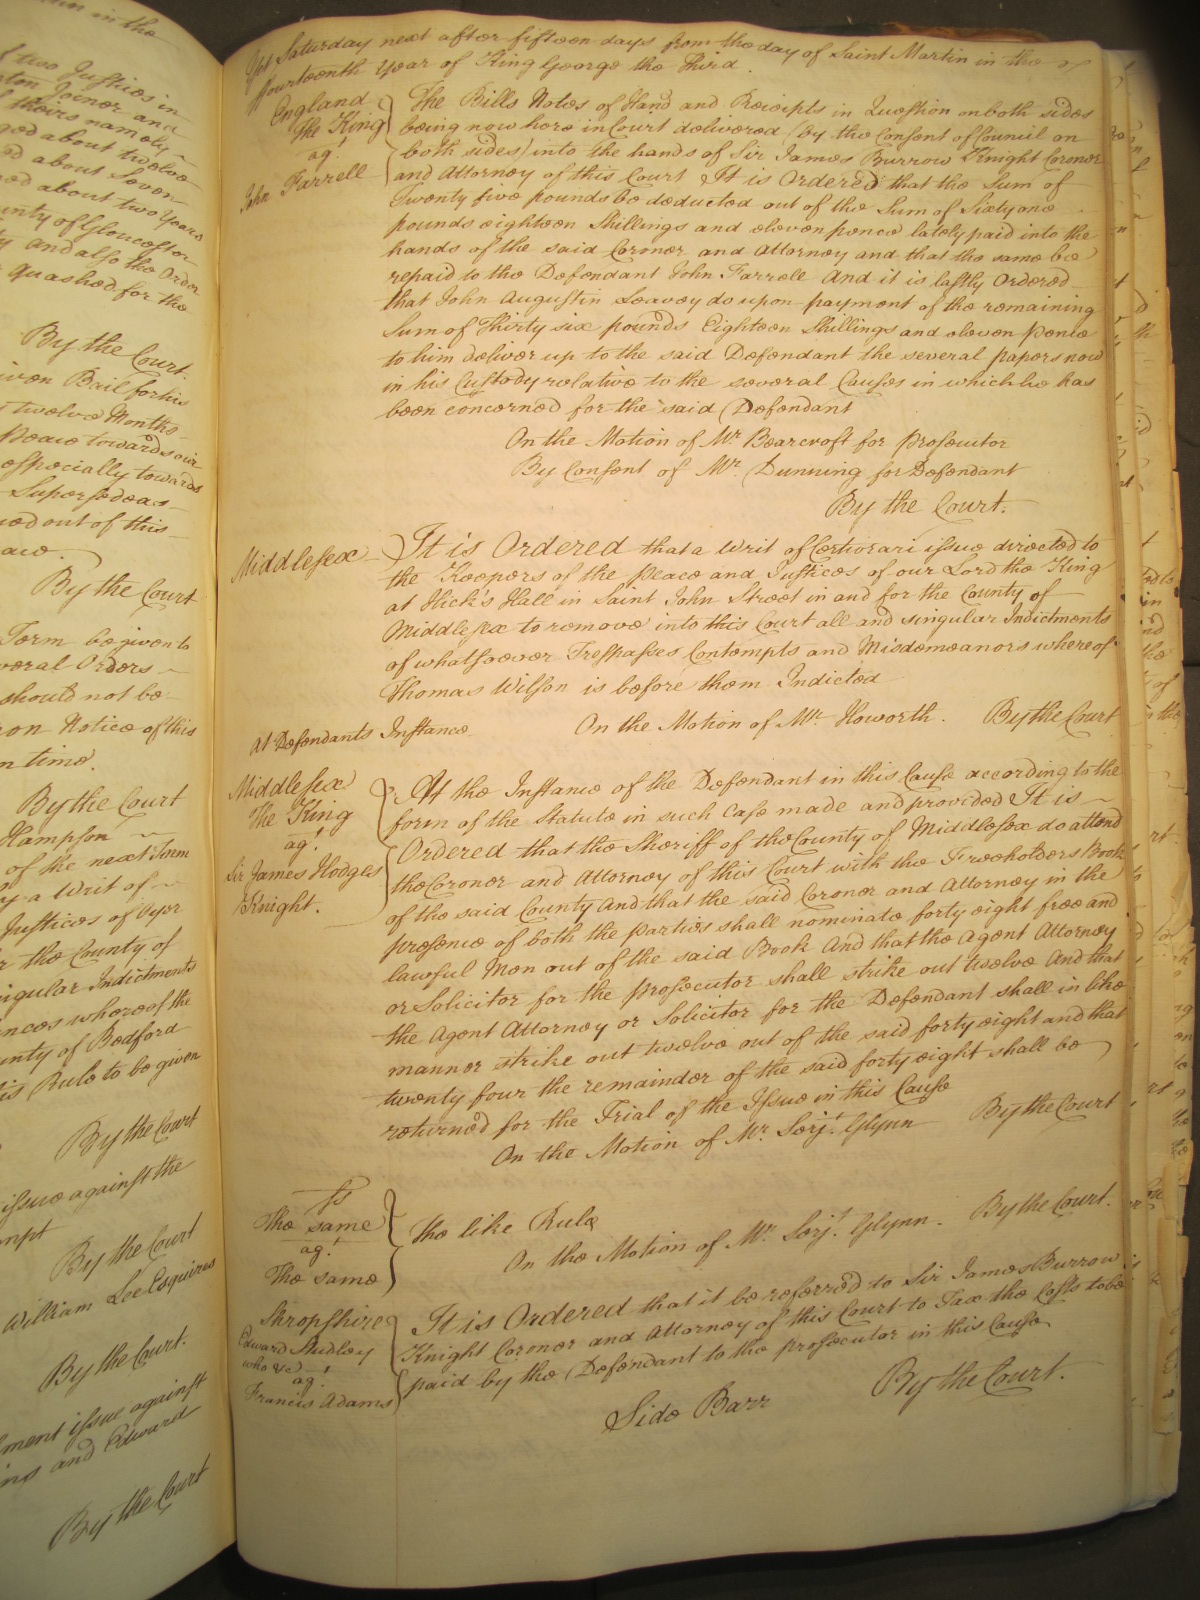 in the
two Justices in
Joiner and
theirs namely
aged about twelve
about Seven
about two years
County of Gloucester
and also the Order
quashed for the
By the Court.
given Bail for his
twelve Months
peace towards our
especially towards
Supersedeas
out of this
By the Court
Term be given to
several Orders
should not be
upon Notice of this
time.
By the Court
Hampson
of the next Term
a Writ of
Justices of Oyer
the County of
singular Indictments
whereof the
County of Bedford
this Rule to be given
By the Court
issue against the
By the Court
William Lee Esquires
By the Court.
issue against
and Edward
By the Court
Yet Saturday next after fifteen days from the day of Saint Martin in the
fourteenth Year of King George the Third.
England
The King
agt
John Farrell
The Bills Notes of Hand and Receipts in Question on both sides
being now here in Court delivered (by the Consent of Council on
both sides) into the hands of Sir James Burrow Knight Coroner
and Attorney of this Court It is Ordered that the Sum of
Twenty five pounds be deducted out of the Sum of Sixty one
pounds eighteen Shillings and eleven pence lately paid into the
hands of the said Coroner and Attorney and that the same be
repaid to the Defendant John Farrell And it is lastly Ordered
that John Augustin Leavey do upon payment of the remaining
Sum of Thirty six pounds Eighteen Shillings and eleven pence
to him deliver up to the said Defendant the several papers now
in his Custody relative to the several Causes in which he has
been concerned for the said Defendant
On the Motion of Mr. Bearcroft for prosecutor
By Consent of Mr. Dunning for Defendant
By the Court.
Middlesex
It is Ordered that a Writ of Certiorari issue directed to
the Keepers of the peace and Justices of our Lord the King
at Hick's Hall in Saint John Street in and for the County of
Middlesex to remove into this Court all and singular Indictments
of whatsoever Trespasses Contempts and Misdemeanors whereof
Thomas Wilson is before them Indicted
At Defendants Instance
On the Motion of Mr. Howorth. By the Court
Middlesex
The King
agt
Sir James Hodges
Knight.
At the Instance of the Defendant in this Cause according to the
form of the Statute in such Case made and provided It is
Ordered that the Sheriff of the County of Middlesex do attend
the Coroner and Attorney of this Court with the Freeholders Book
of the said County And that the said Coroner and Attorney in the
presence of both the parties shall nominate forty eight free and
lawful Men out of the said Book And that the Agent Attorney
or Solicitor for the prosecutor shall strike out twelve And that
the Agent Attorney or Solicitor for the Defendant shall in like
manner strike out twelve out of the said forty eight and that
twenty four the remainder of the said forty eight shall be
returned for the Trial of the Issue in this Cause
On the Motion of Mr. Serjt. Glynn By the Court
Ss
The same
agt
The same
The like Rule
On the Motion of Mr. Serjt. Glynn. By the Court.
Shropshire
Edward Studley
who &c
agt
Francis Adams
It is Ordered that it be referred to Sir James Burrow
Knight Coroner and Attorney of this Court to Tax the Costs to be
paid by the Defendant to the prosecutor in this Cause
Side Barr By the Court.